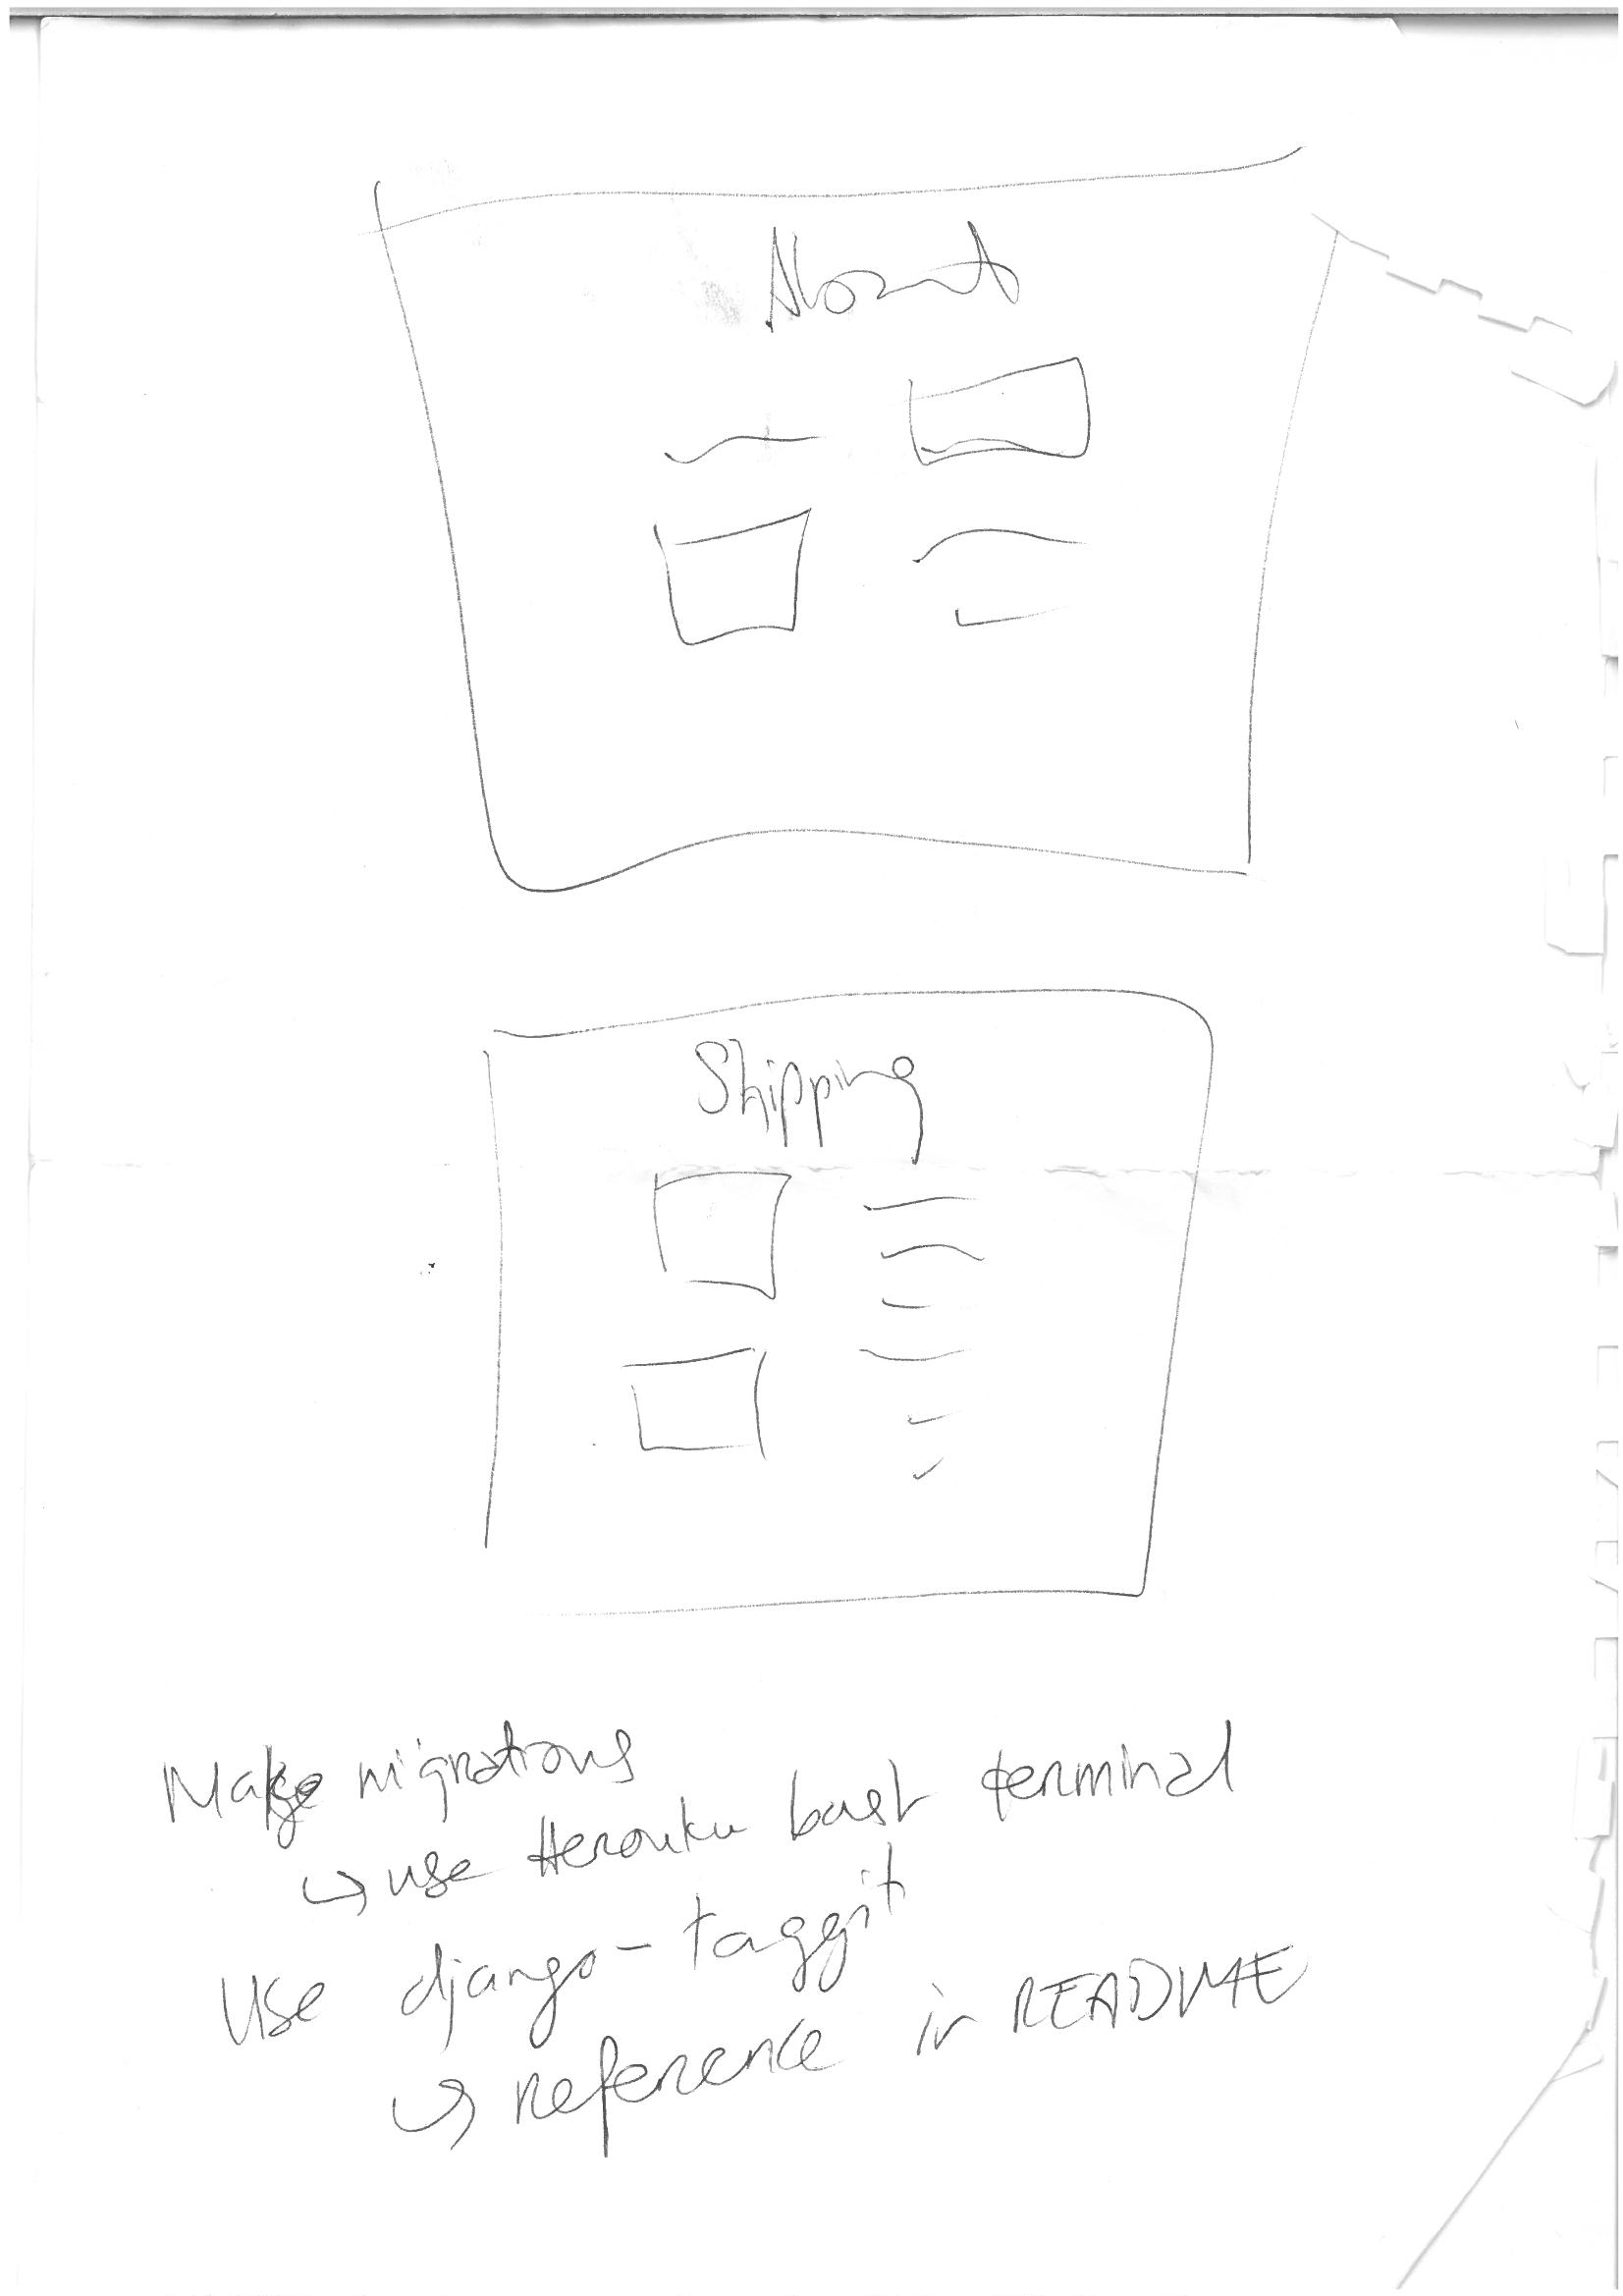 About
Shipping
Make migrations
↳ use Herouku bash terminal
Use django-taggit
↳ reference in README